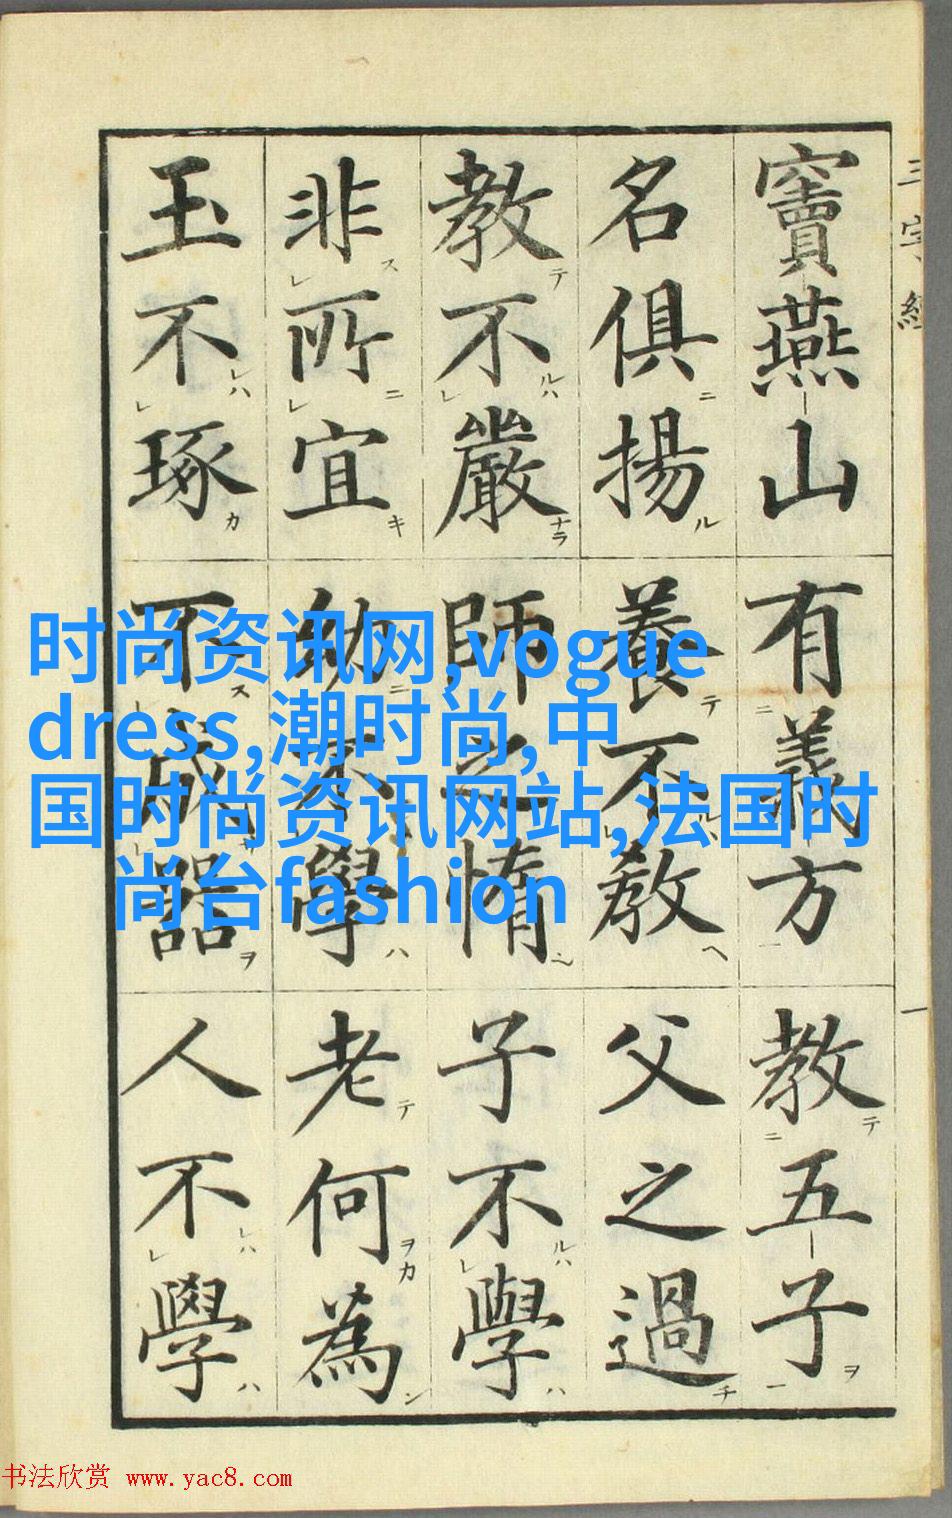 三字經
竇燕山有義方教五子
名俱揚養不教父之過
教不嚴師之惰子不學
非所宜幼不學老何為
玉不琢不成器人不學
一
时尚资讯网,vogue
dress,潮时尚,中
国时尚资讯网站,法国时
尚台fashion
书法欣赏 www.yac8.com